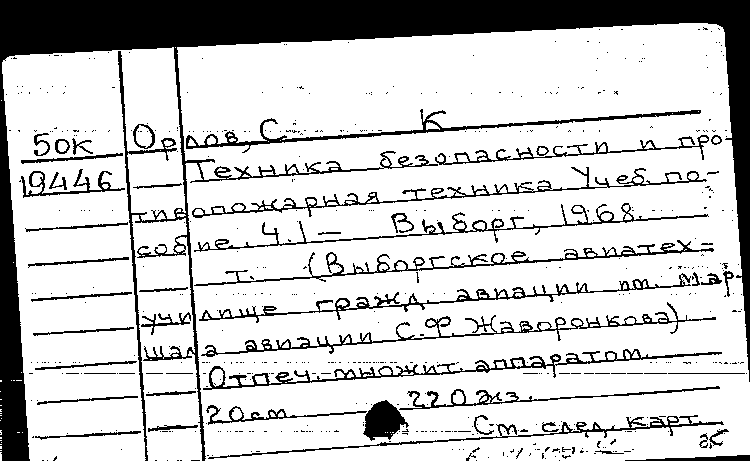 50к Орлов, С. К
19446 Техника безопасности и про-
тивопожарная техника. Учеб. по-
собие. Ч.1 — Выборг, 1968.
т. (Выборгское авиатех=
училище гражд. авиации им. Мар-
шала авиации С.Ф. Жаворонкова).
Отпеч. множит. аппаратом.
20 см. 220 экз.
См. след. карт.